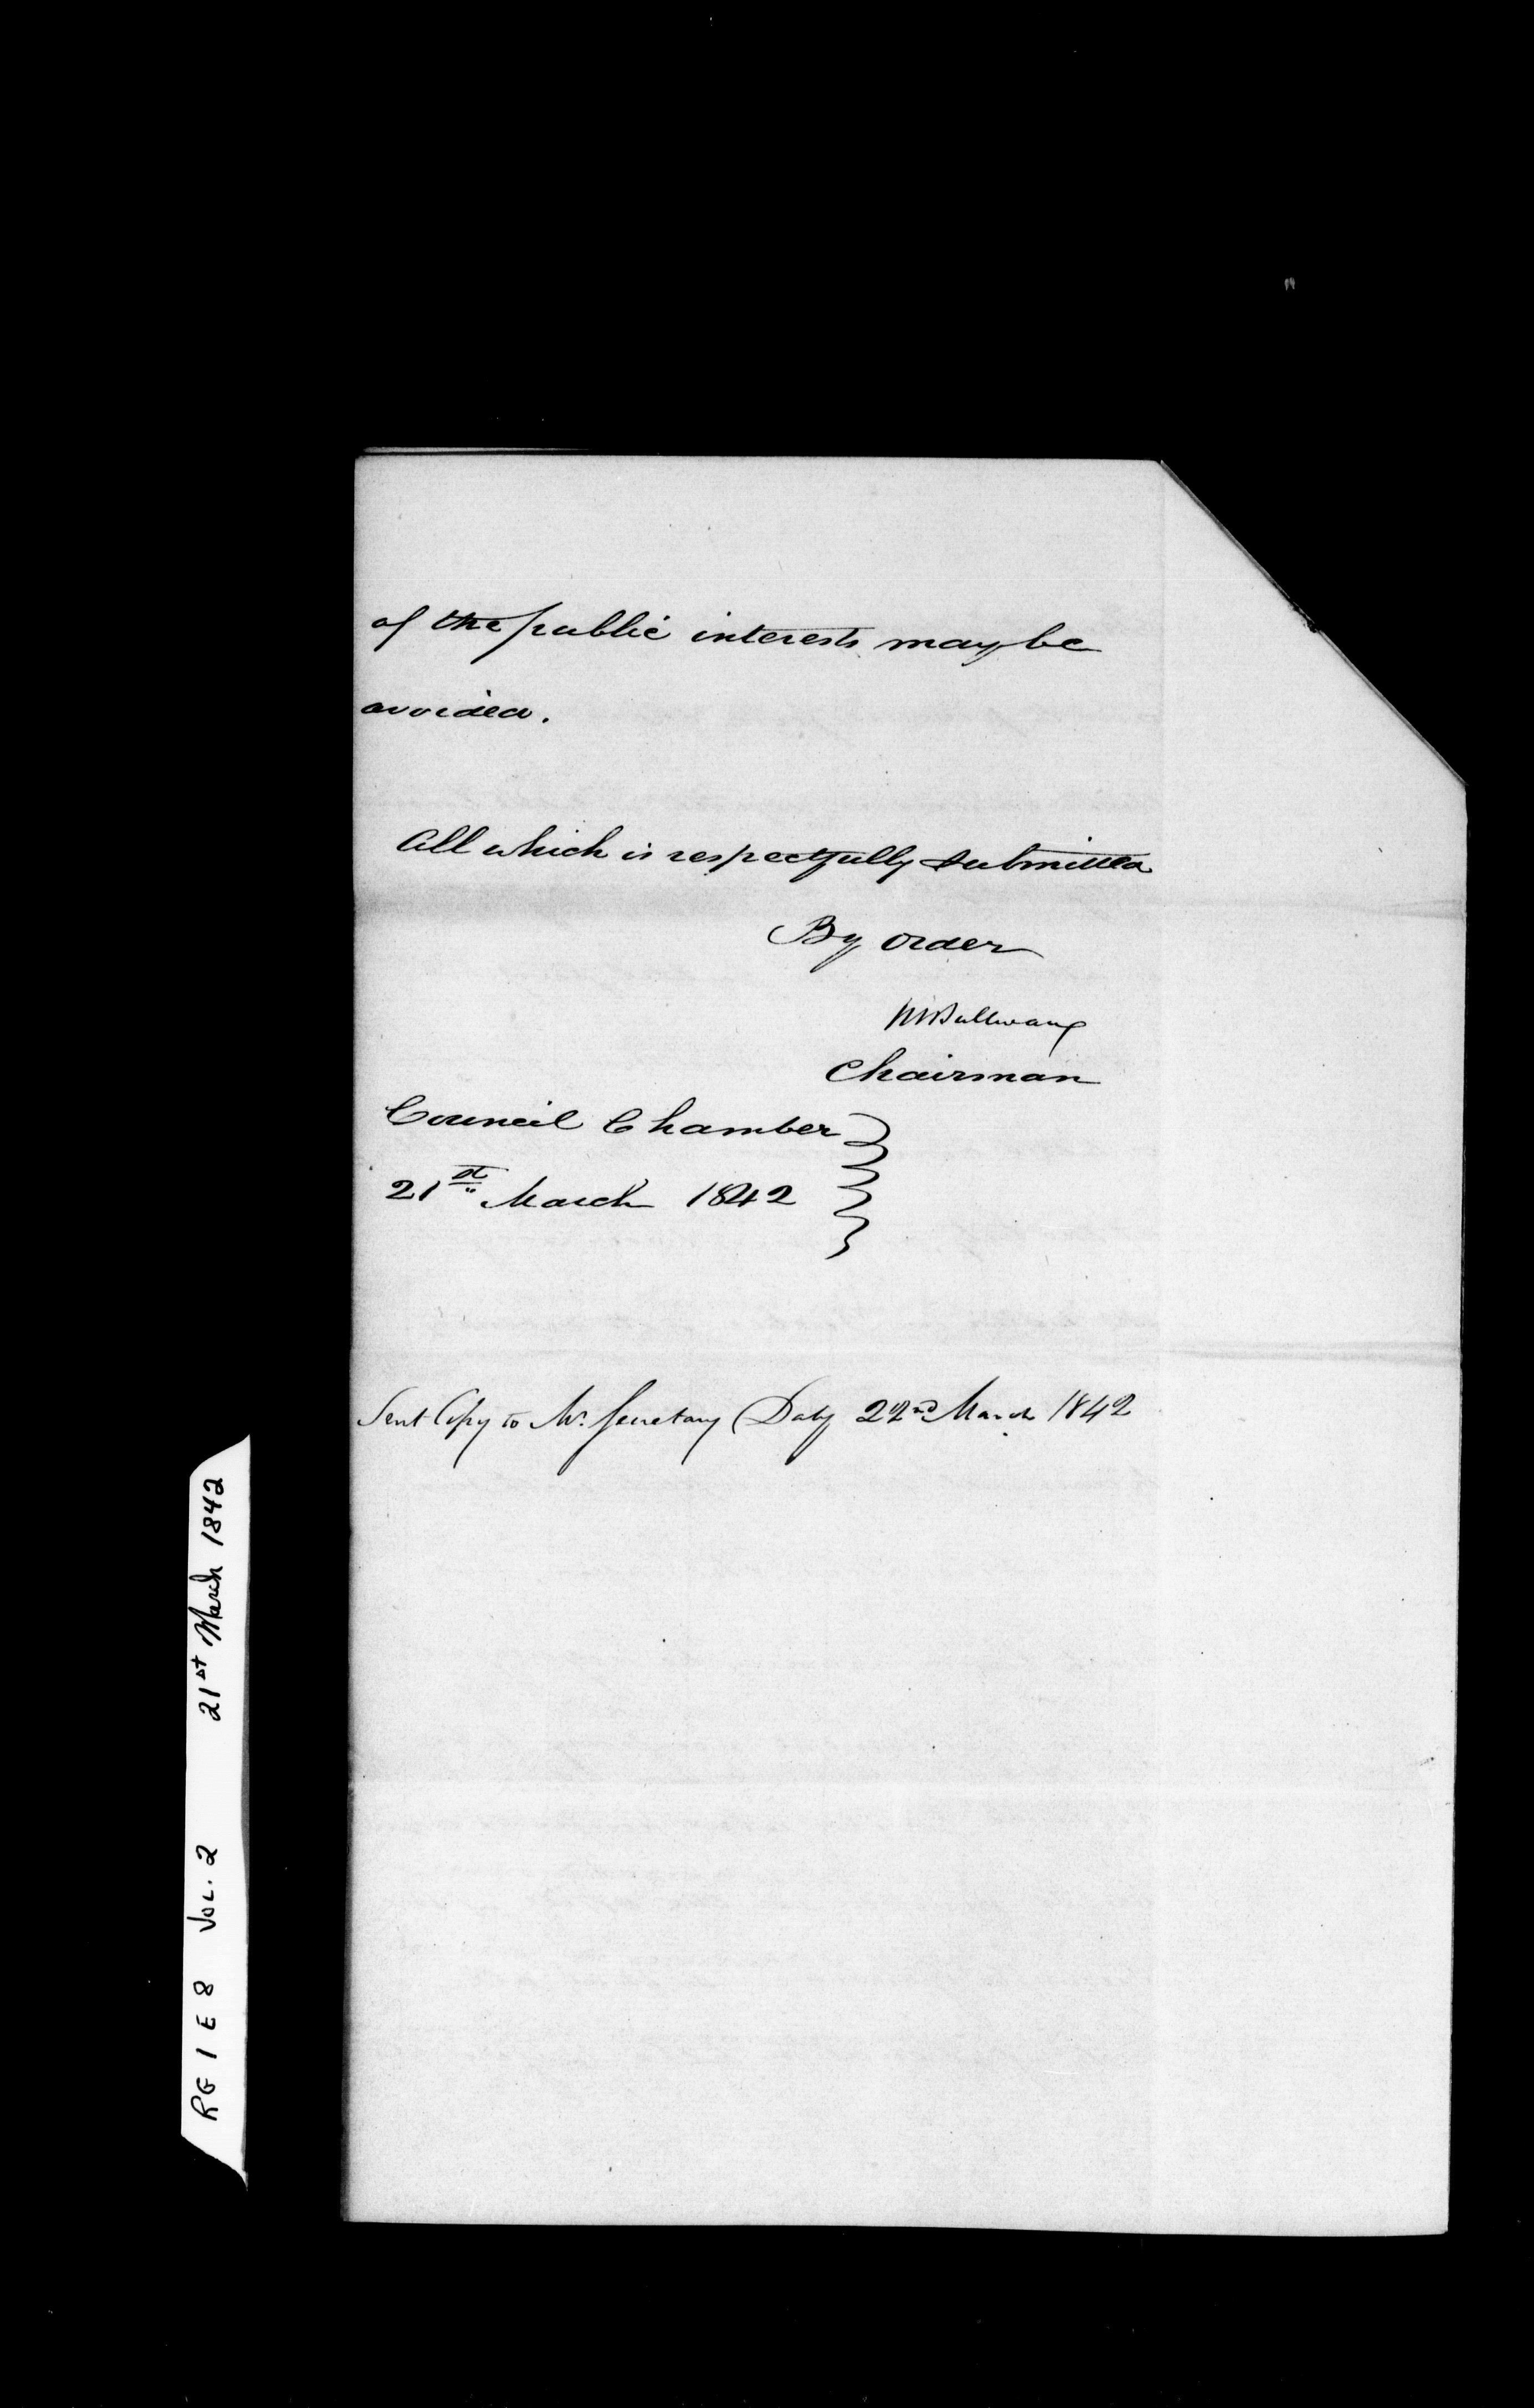 of the public interests may be
avoided.
All which is respectfully submitted
By order
Chairman
Council Chamber
21st March 1842
Sent Copy to Mr. Secretary Daly 22nd March 1842
RG 1 E 8 VOL. 2 21st March 1842